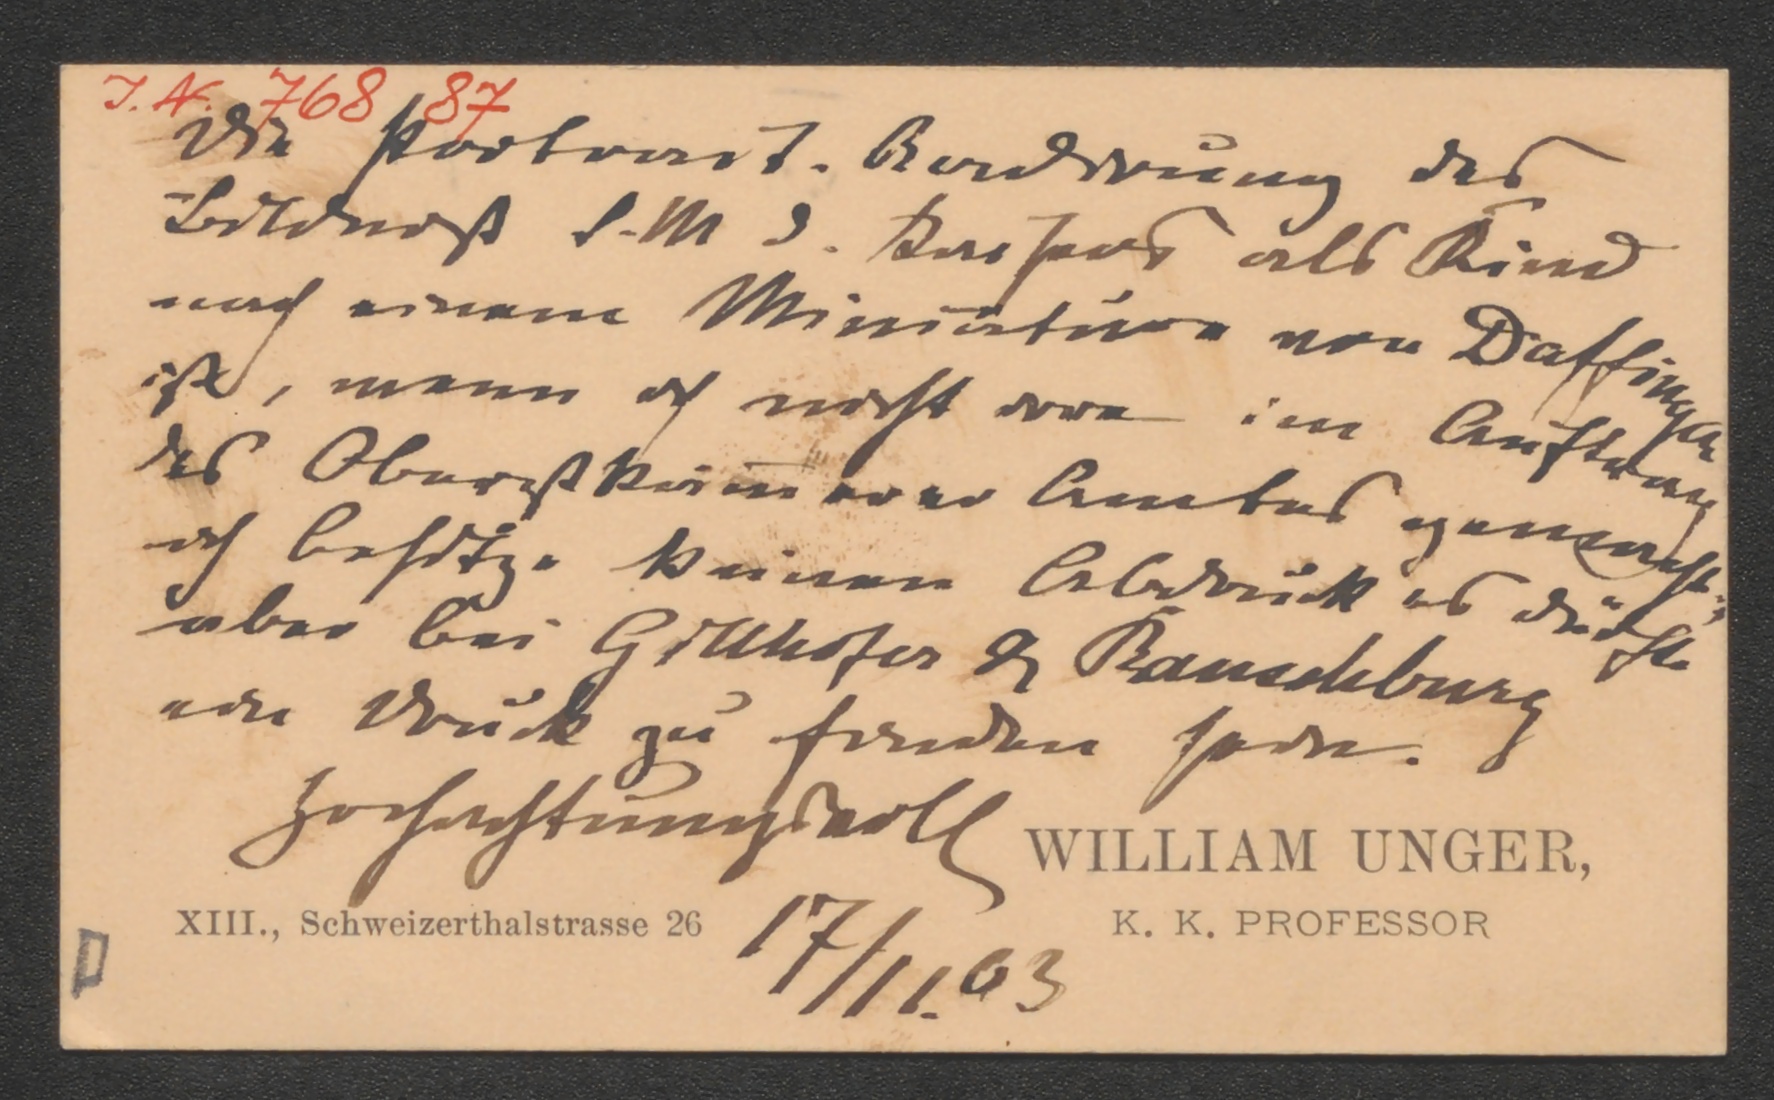 I. N. 768 87
Die Portrait-Radirung des
Bildniß S. M. d. Kaisers als Kind
nach einem Miniature von Daffinger
ist, wenn ich nicht irre im Auftrag
des Oberstkämmerer Amtes gemacht;
ich besitze keinen Abdruck es dürfte
aber bei Gillhofer & Ranschburg
ein Druck zu finden sein.
Hochachtungsvoll
WILLIAM UNGER,
XIII., Schweizerthalstrasse 26
K. K. PROFESSOR
17/11.03